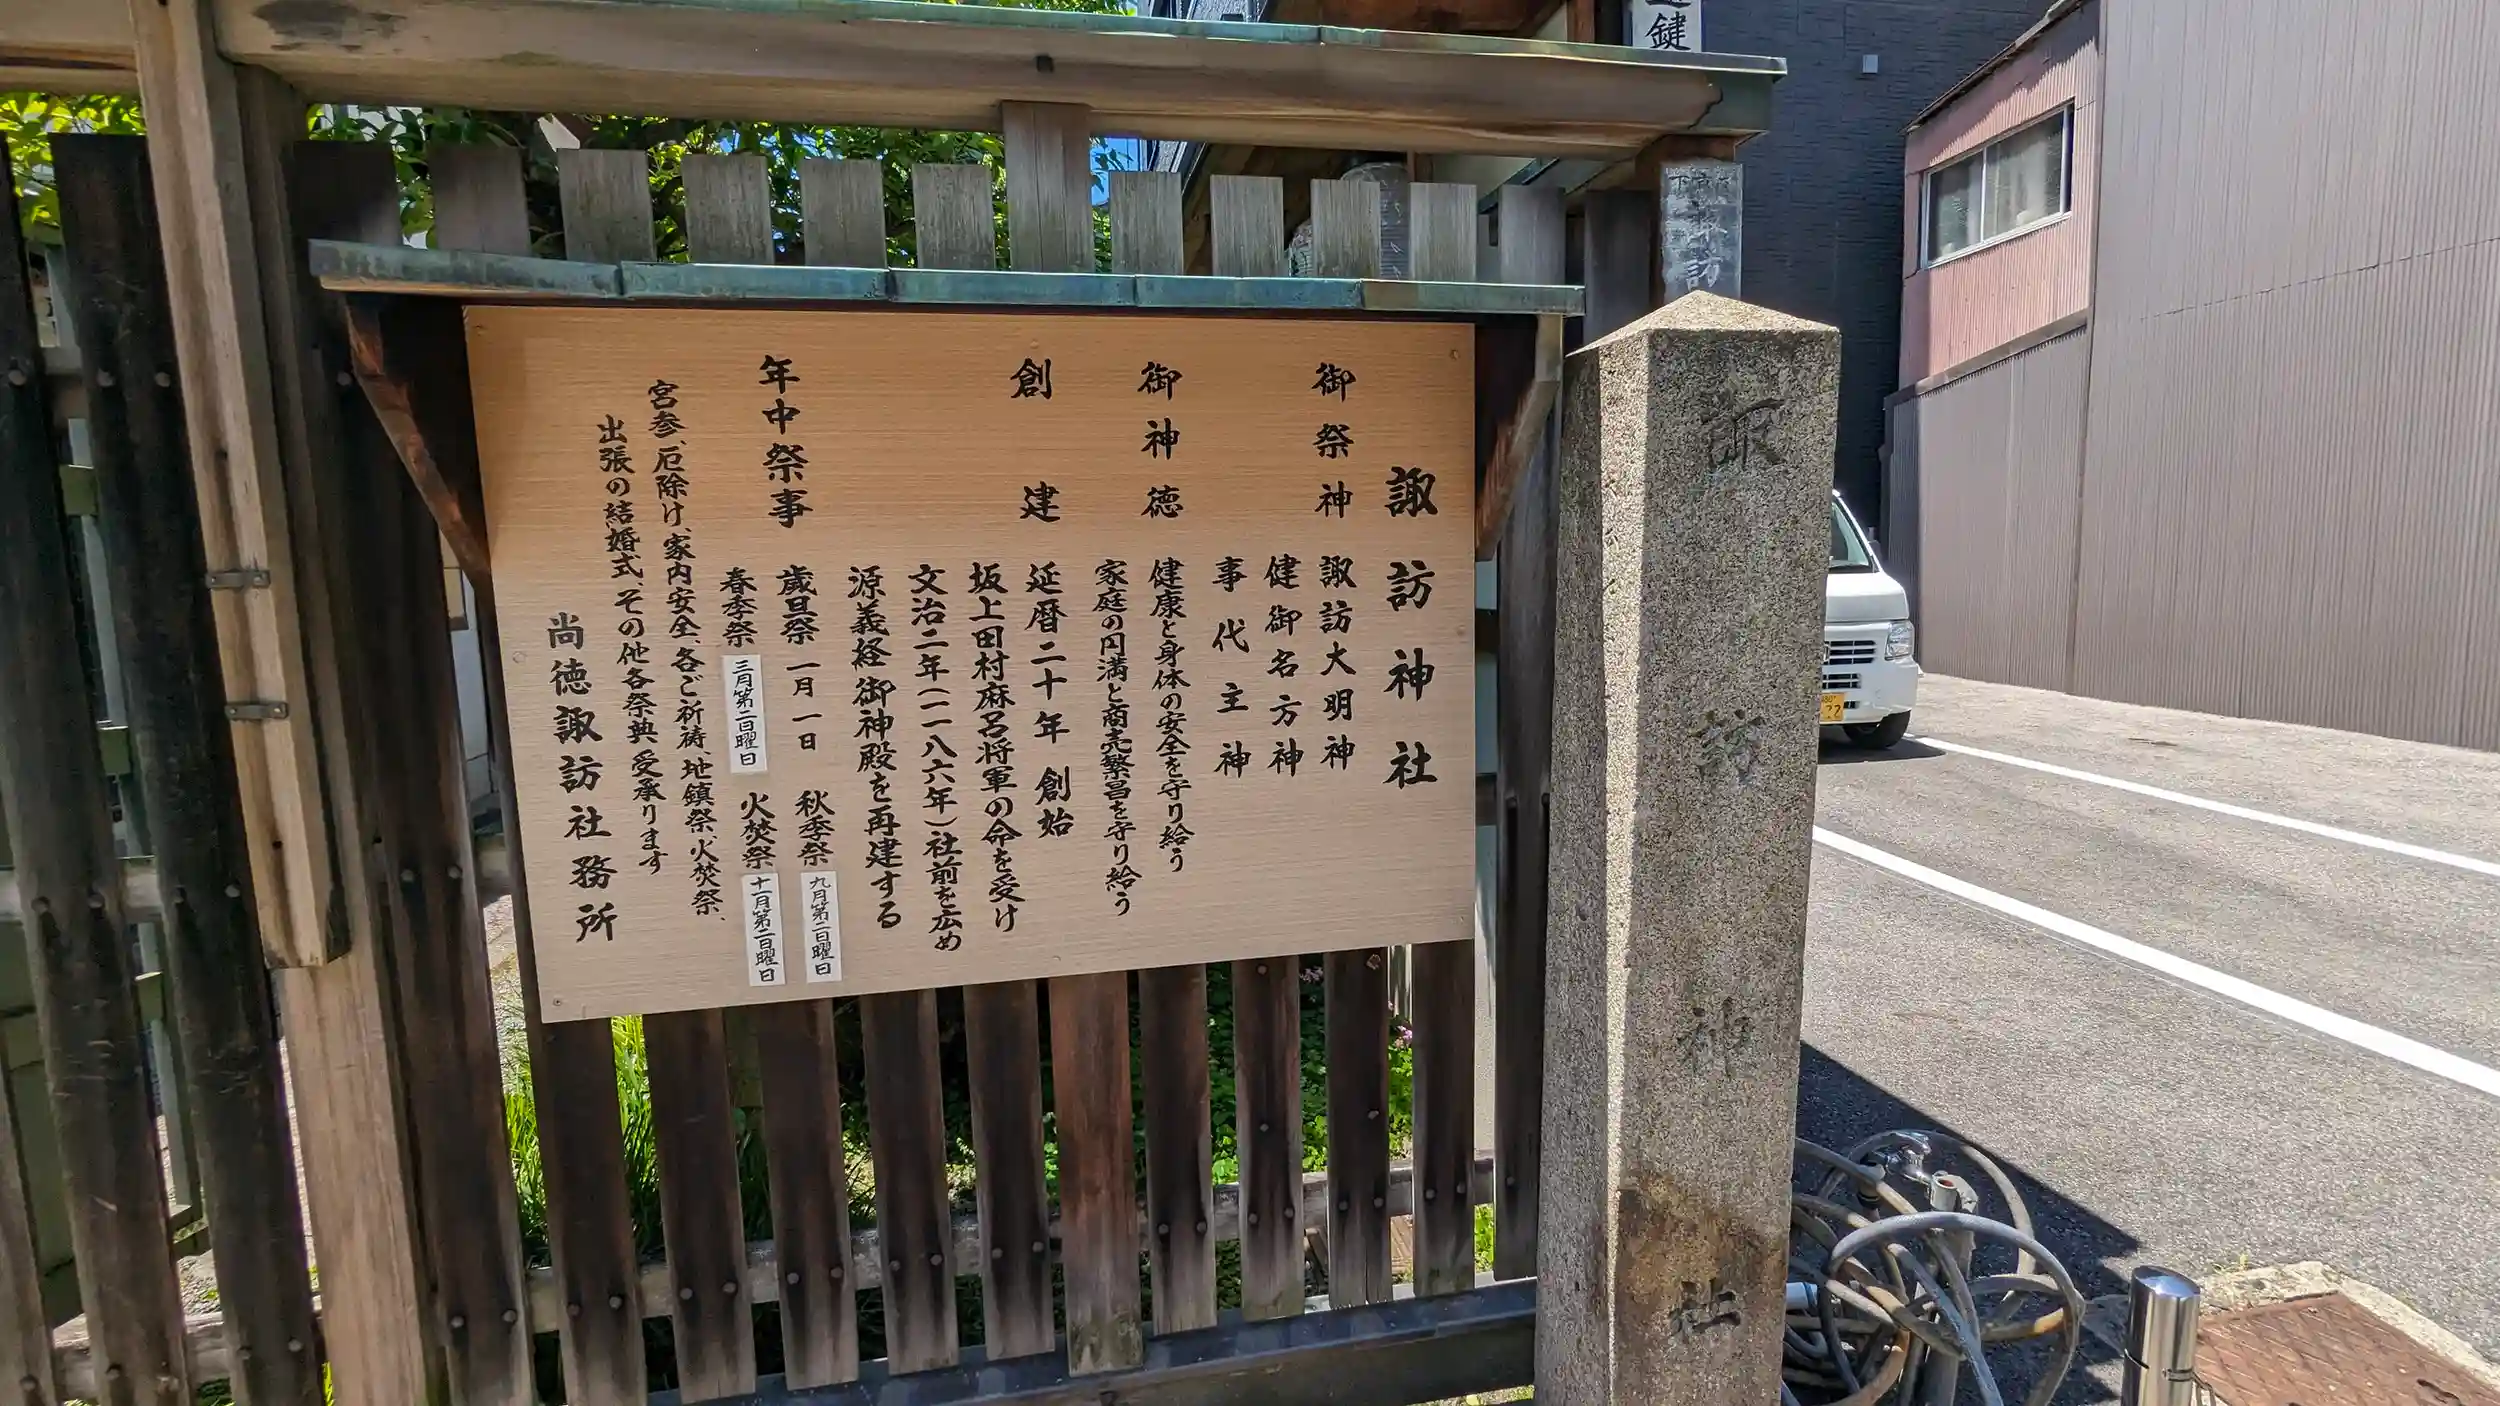 諏訪神社
御祭神 諏訪大明神
健御名方神
事代主神
御神徳 健康と身体の安全を守り給う
家庭の円満と商売繁昌を守り給う
創建 延暦二十年 創始
坂上田村麻呂将軍の命を受け
文治二年(一一八六年)社前を広め
源義経 御神殿を再建する
年中祭事 歳旦祭 一月一日 秋季祭 九月第二日曜日
春季祭 三月第二日曜日 火焚祭 十一月第二日曜日
宮参、厄除け、家内安全、各ご祈祷、地鎮祭、火焚祭、
出張の結婚式、その他各祭典 受承ります
尚徳諏訪社務所
諏訪神社
鍵
諏訪